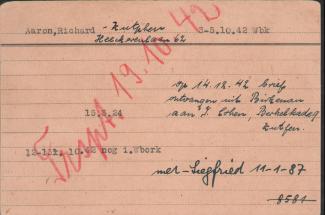 Aaron, Richard - Zutphen 3-5.10.42 Wbk
Heeckerenlaan 62
Trspt 19.10.42
op 14.12.42 brief
ontvangen uit Birkenau
aan J. Cohen, Berkelkade
Zutfen.
15.5.24
10.42 nog i.Wbork
met Siegfried 11-1-87
8581